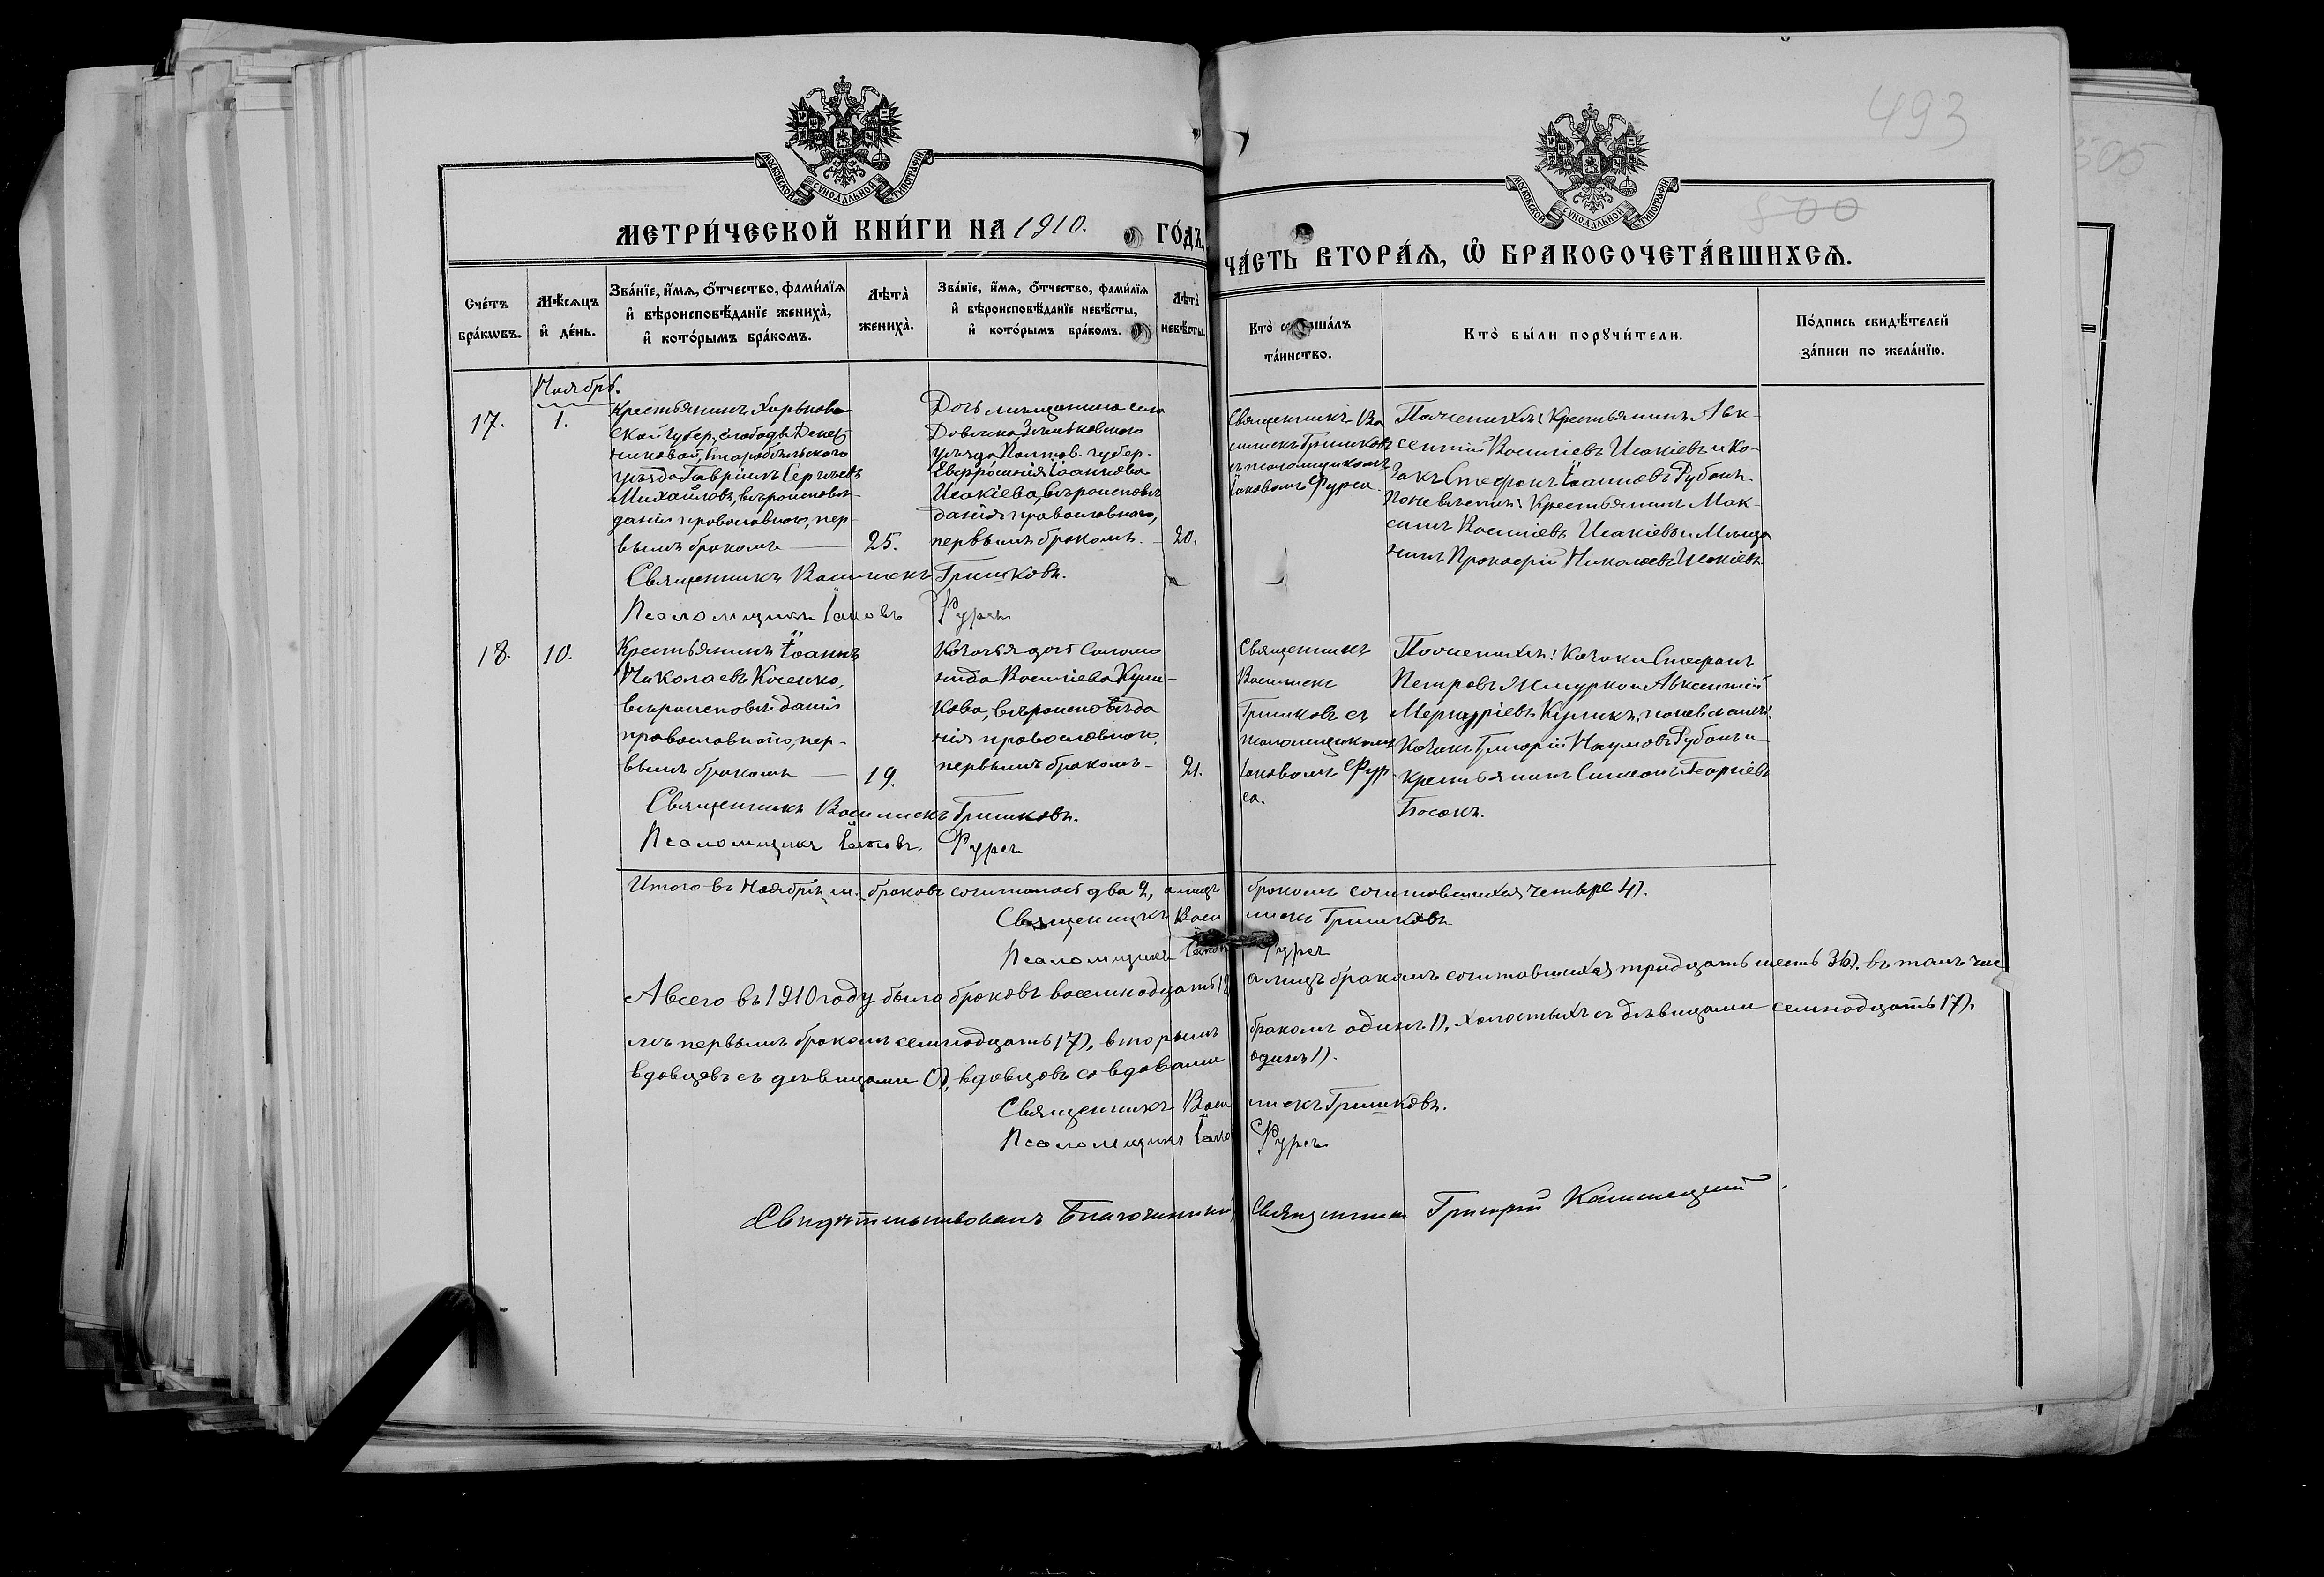 493
505
500
МОСКОВСКОЙ СѴНОДАЛЬНОЙ ТИПОГРАФІИ
МОСКОВСКОЙ СѴНОДАЛЬНОЙ ТИПОГРАФІИ
МЕТРИ́ЧЕСКОЙ КНИ́ГИ НА 1910. ГО́ДЪ,
ЧА́СТЬ ВТОРА́Ѧ, Ѽ БРАКОСОЧЕТА́ВШИХСѦ.
Сче́тъ бра́кѡвъ.
Мѣ́сѧцъ и҆ де́нь.
Зва́нїе, и҆́мѧ, ѻ҆́тчество, фами́лїѧ
и҆ вѣроисповѣ́данїе жениха̀,
и҆ кото́рымъ бра́комъ.
Лѣта̀ жениха̀.
Зва́нїе, и҆́мѧ, ѻ҆́тчество, фами́лїѧ
и҆ вѣроисповѣ́данїе невѣ́сты,
и҆ кото́рымъ бра́комъ.
Лѣта̀ невѣ́сты.
Кто̀ соверша́лъ
та́инство.
Кто̀ бы́ли порꙋчи́тели.
По́дпись свидѣ́телей
за́писи по жела́нїю.
Ноябрь.
17.
1.
Крестьянинъ Харьков-
ской губер., слободы
Старобѣльскаго
уѣзда Гавріилъ Сергѣевъ
Михайловъ, вѣроисповѣ-
данія православнаго, пер-
вымъ бракомъ — 25.
Дочь мѣщанина села
Зѣньковскаго
уѣзда Полтав. губер.
Евфросинія Іоаннова
Исакіева, вѣроисповѣ
данія православнаго,
первымъ бракомъ. — 20.
Священникъ Ва
силискъ Гришковъ
съ псаломщикомъ
Іаковомъ Фурса.
По женихѣ: Крестьянинъ Авк-
сентій Василіевъ Исакіевъ и Ко-
закъ Стефанъ Іоанновъ Рубанъ.
По невѣстѣ: Крестьянинъ Мак-
симъ Василіевъ Исакіевъ и Мѣща
нинъ Прокофій Николаевъ Исакіевъ.
Священникъ Василискъ Гришковъ.
Псаломщикъ Іаковъ Фурса
18.
10.
Крестьянинъ Іоаннъ
Николаевъ Косенко,
вѣроисповѣданія
православнаго, пер-
вымъ бракомъ — 19.
Козачья дочь Соломо
нида Василіева Кули-
кова, вѣроисповѣда
нія православнаго,
первымъ бракомъ — 21.
Священникъ
Василискъ
Гришковъ съ
псаломщикомъ
Іаковомъ Фур-
са.
По женихѣ: Козаки Стефанъ
Петровъ и Авксентій
Меркуріевъ Куликъ; по невѣстѣ:
Козакъ Григорій Наумовъ Рубанъ и
Крестьянинъ Симеонъ Георгіевъ
Босакъ.
Священникъ Василискъ Гришковъ.
Псаломщикъ Іаковъ Фурса
Итого въ Ноябрѣ м. браковъ сочиталось два 2, а лицъ бракомъ сочитавшихся четыре 4).
Священникъ Василискъ Гришковъ
Псаломщикъ Іаковъ Фурса
А всего въ 1910 году было браковъ восемнадцать 18 а лицъ бракомъ сочитавшихся тридцать шесть 36). въ томъ чис
лѣ первымъ бракомъ семнадцать 17), вторымъ бракомъ одинъ 1), холостыхъ съ дѣвицами семнадцать 17),
вдовцовъ съ дѣвицами 0), вдовцовъ со вдовами одинъ 1).
Священникъ Василискъ Гришковъ.
Псаломщикъ Іаковъ Фурса
Свидѣтельствовалъ Благочинный, Священникъ Григорій